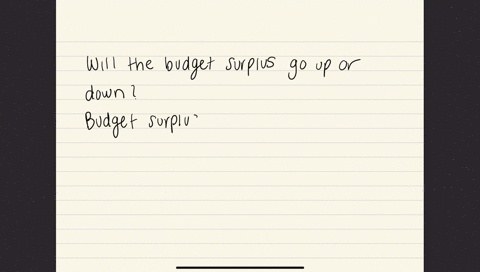 Will the budget surplus go up or
down?
Budget surplu